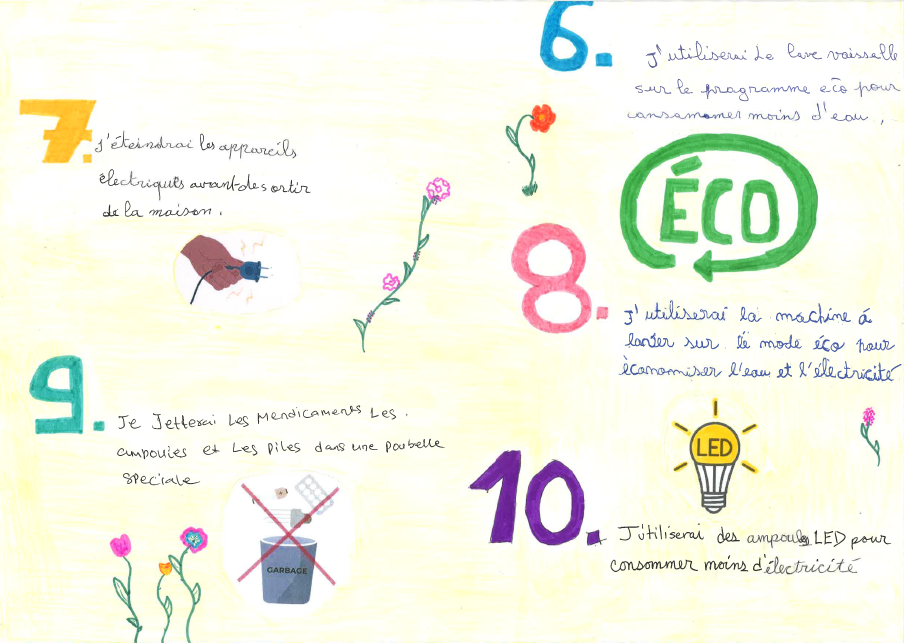 6.
J'utiliserai le lave vaisselle
sur le programme éco pour
consamomer moins d'eau.
ÉCO
7.
j'éteindrai les appareils
électriques avant de sortir
de la maison.
8.
J'utiliserai la machine á
laver sur le mode éco pour
èconomiser l'eau et l'électricité
9.
Je Jetterai Les Mendicaments Les.
ampoules et Les Piles dans une poubelle
SPeciale
GARBAGE
LED
10.
J'utiliserai des ampoules LED pour
consommer moins d'électricité